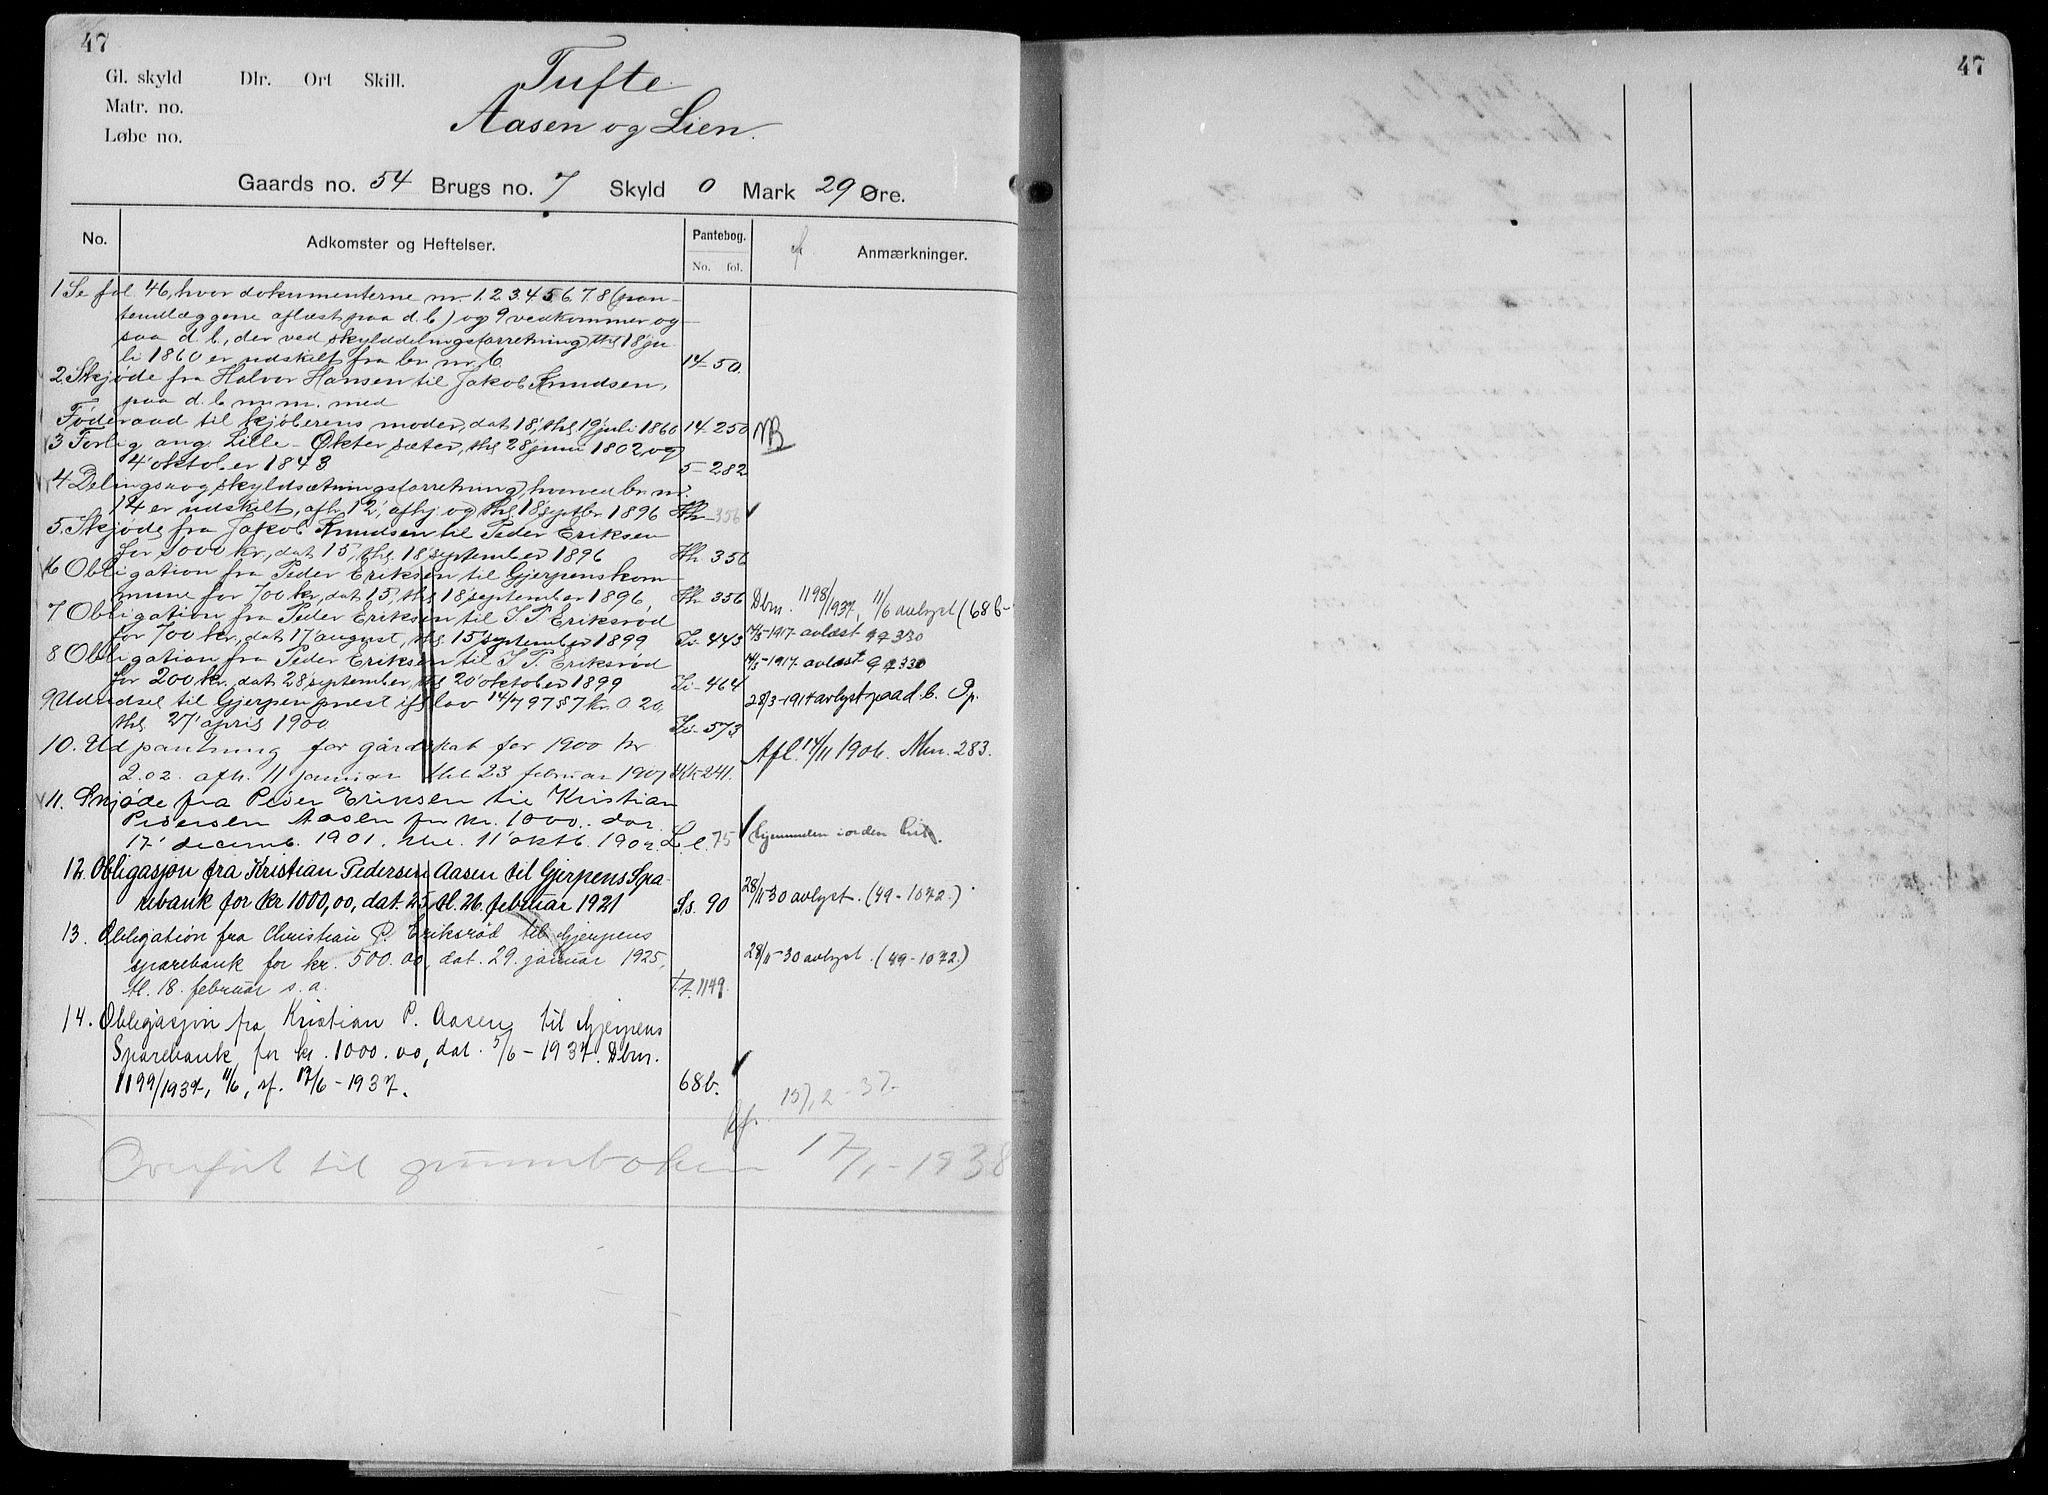 47
Gl. skyld Dlr. Ort Skill.
Matr. no.
Løbe no.
Tufte
Aasen og Lien.
Gaards no. 54 Brugs no. 7 Skyld 0 Mark 29 Øre.
No. Adkomster og Heftelser. Pantebog. No. fol. Anmærkninger.
1 Se fol. 46, hvor dokumenterne nr. 1.2.3.4.5.6.7.8 (pan-
teudlæggene aflæst paa d. b.) og 9 vedkommer og-
saa d. b., der ved skylddelingsforretning thl 18 ju-
li 1860 er udskilt fra br. nr. 6 14-50.
2 Skjøde fra Halvor Hansen til Jakob Knudsen,
paa d. b. m.m. med
Føderaad til kjøberens moder, dat 18', thl 19 juli 1860 14-250 NB
3 Forlig ang. Lille-Økter sæter, thl 28 juni 1802 og
4' oktober 1843 5-282
4 Delings og skyldsætningsforretning, hvorved br. nr.
14 er udskilt, afh. 12', afhj og thl 18 septbr 1896 Hh-356
5. Skjøde fra Jakob Knudsen til Peder Eriksen
for 1000 kr, dat 15, thl. 18' september 1896 Hh 356
6 Obligation fra Peder Eriksen til Gjerpens kom-
mune for 700 kr, dat 15, thl 18, september 1896 Hh 356 Dbnr. 1198/1937, 11/6 avlyst (68b-
7 Obligation fra Peder Eriksen til I. P. Eriksrød
for 700 kr, dat 17 august, thl 15 september 1899 Ii-443 14/5-1917 avlæst Qq 330
8 Obligation fra Peder Eriksen til I. P. Eriksrød 14/5-1917 avlæst Qq 330
for 200 kr, dat 28 september, thl 20' oktober 1899 Ii-464
9 Udredsel til Gjerpen prest iflg lov 14/7 97 § 7 kr. 0 20, 28/3-1914 avlyst paa d. b. Pp.
thl 27' april 1900 Ii-573
10. Udpantning for gårdskat for 1900 kr
2.02. afh. 11 januar thl 23 februar 1901 Kk 241. Afl. 14/11 1906. Mm. 283.
11. Skjøde fra Peder Eriksen til Kristian
Pedersen Aasen for kr. 1000.. dat.
17' decemb. 1901. thl. 11' oktb. 1902. L.l. 75 hjemmelen i orden
12. Obligasjon fra Kristian Pedersen Aasen til Gjerpens Spa-
rebank for kr 1000,00, dat. 25, tl. 26. februar 1921 Ss. 90 28/11-30 avlyst. (49-1072.)
13. Obligation fra Christian P. Eriksrød til Gjerpens
sparebank for kr. 500.00, dat. 29. januar 1925, 28/11-30 avlyst. (49-1072.)
tl. 18. februar s. a. T.t. 1149.
14. Obligasjon fra Kristian P. Aasen til Gjerpens
Sparebank for kr. 1000.00, dat. 5/6-1937. Dbnr.
1199/1937, 11/6, rf. 12/6-1937. 68b.
15/12-37
Overført til grunnboken 17/1-1938
47